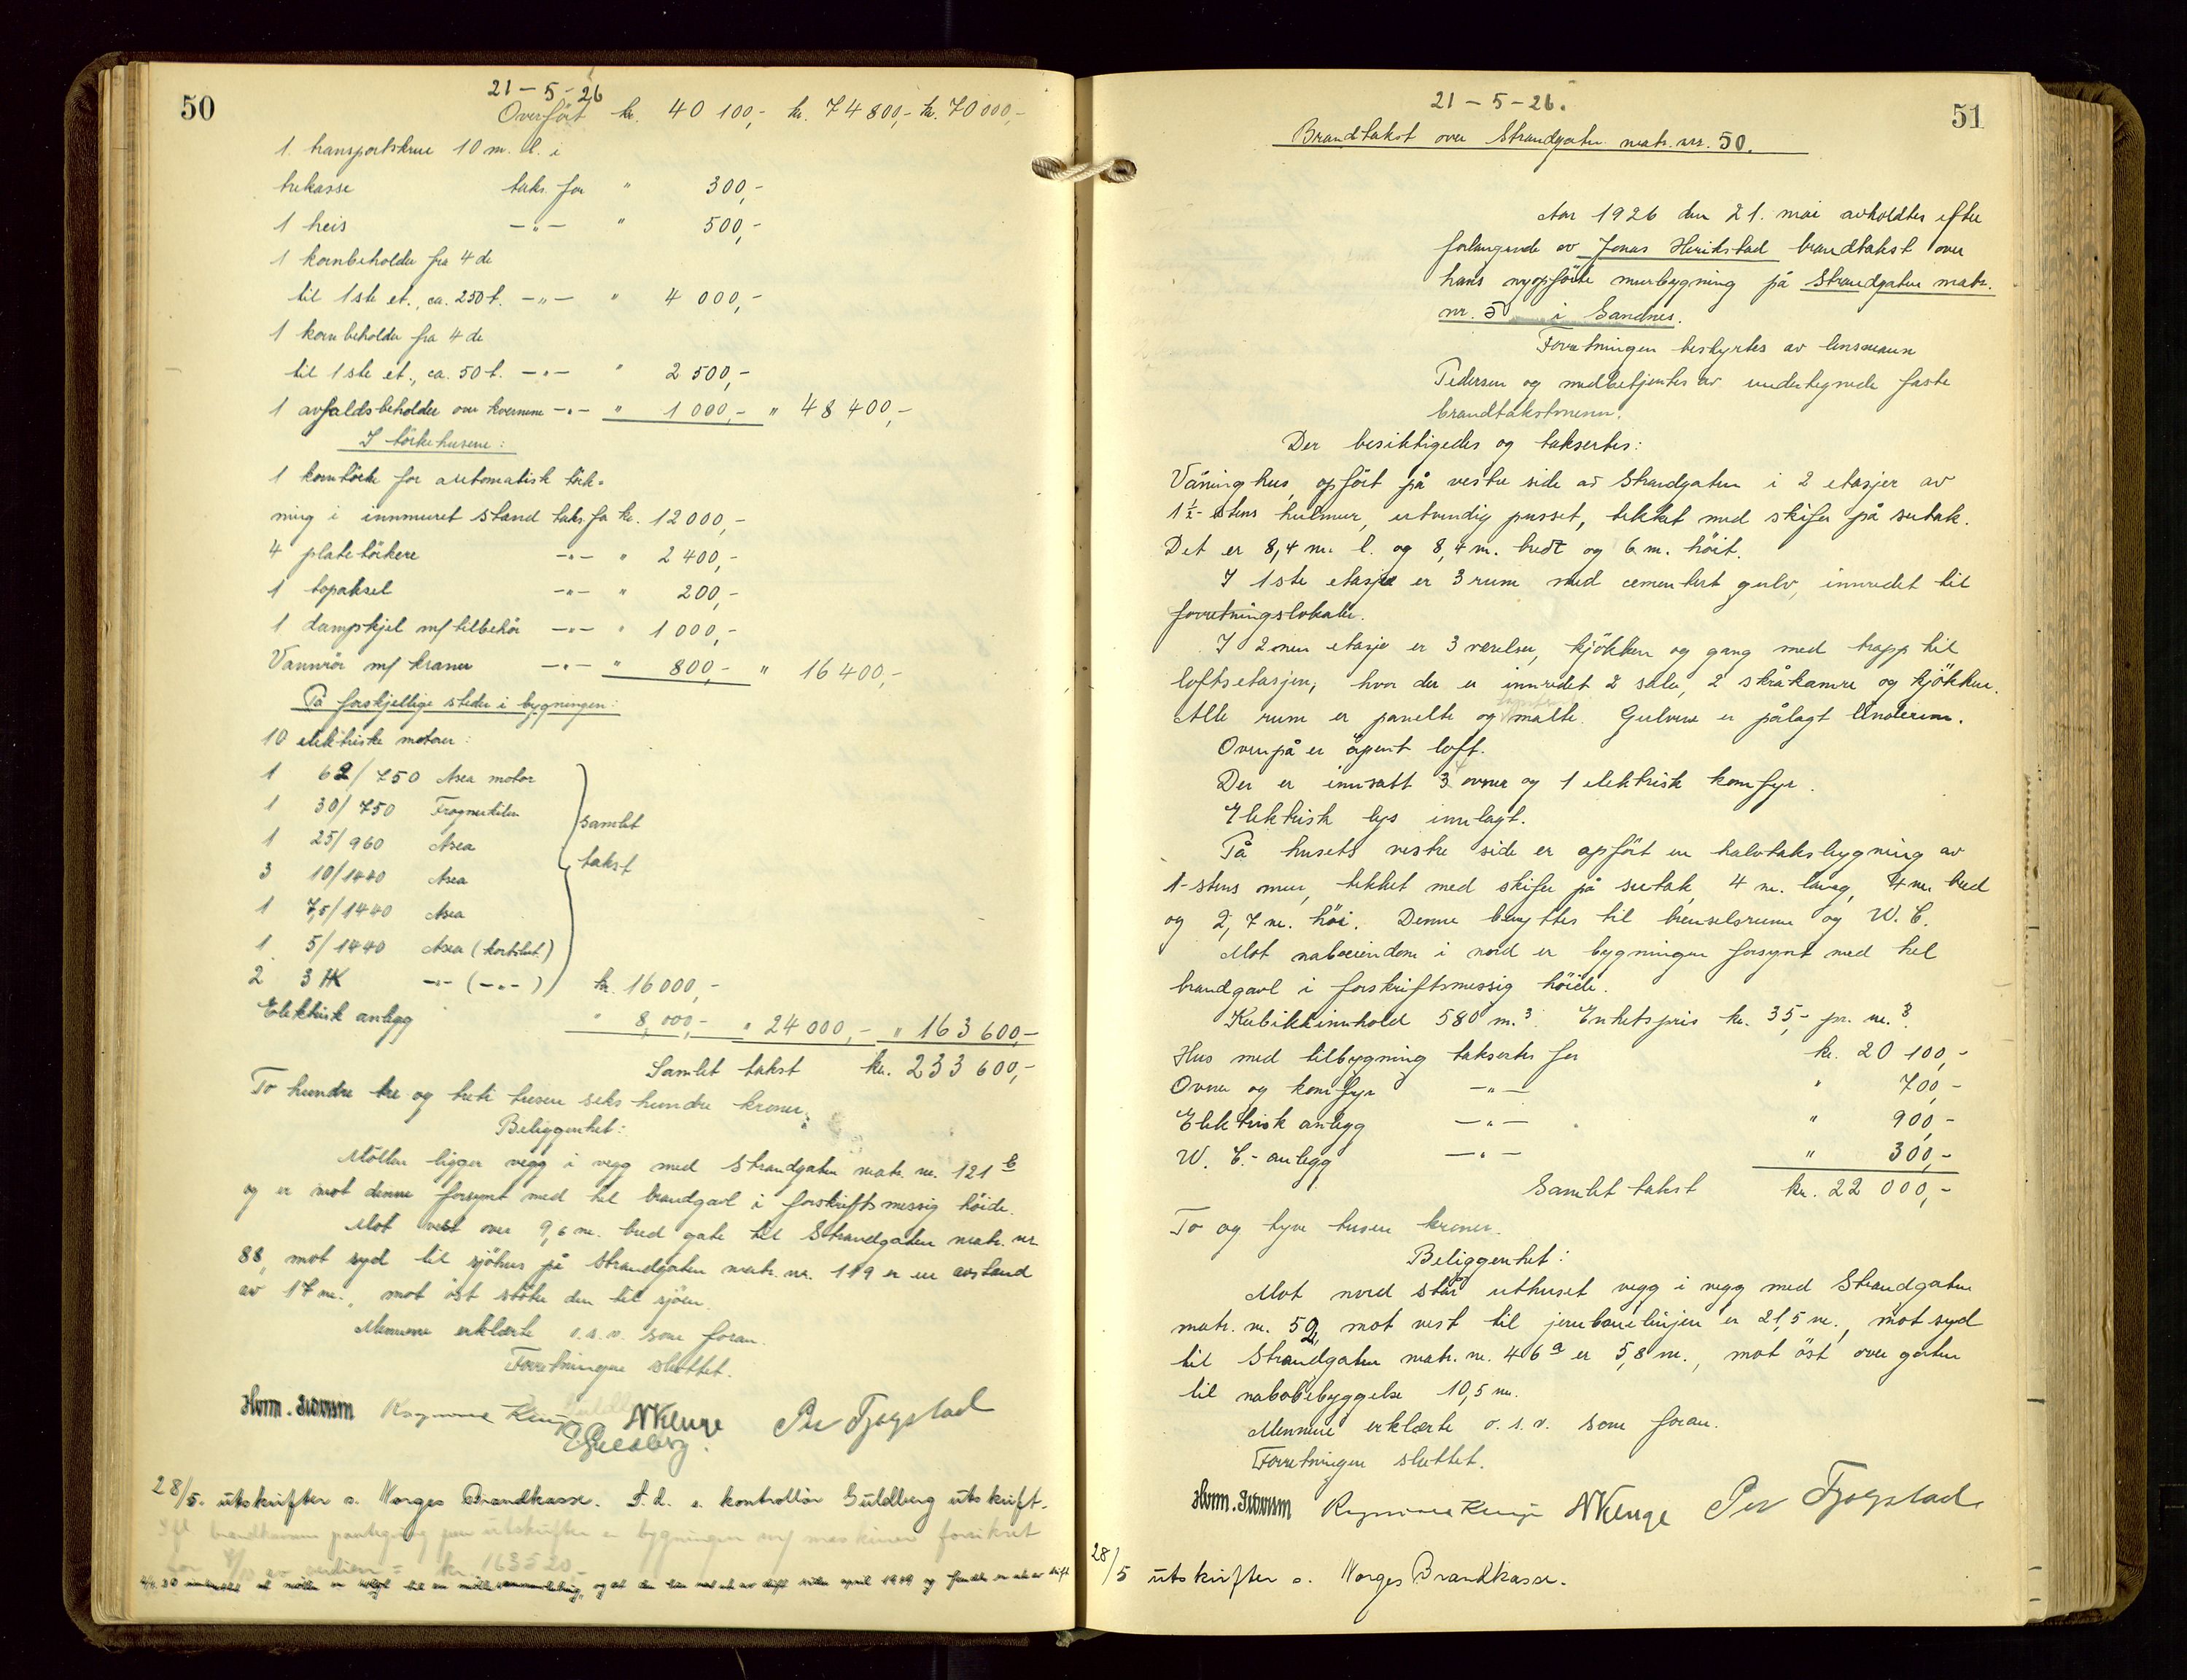 50
21 – 5 – 26
Overført kr. 40 100,- kr. 74 800,- kr. 70 000,-
1. transportskrue 10 m. l. i
trekasse taks. for " 300,-
1 heis –"– " 500,-
1 kornbeholder fra 4 de
til 1ste et., ca. 250 t. –"– " 4 000,-
1 kornbeholder fra 4 de
til 1ste et., ca. 50 t. –"– " 2 500,-
1 avfaldsbeholder over kvernene –"– " 1 000,- " 48 400,-
I törkehusene:
1 korntörke for automatisk törk-
ning i innmuret stand taks. for kr. 12 000,-
4 platetörkere –"– " 2 400,-
1 topaksel –"– " 200,-
1 dampkjel m/ tilbehör –"– " 1 000,-
Vannrör m/ kraner –"– " 800,- " 16 400,-
På forskjellige steder i bygningen:
10 elektriske motorer:
1 62/750 Asea motor
1 30/750 Frognerkilen
1 25/960 Asea
3 10/1440 Asea
1 7,5/1440 Asea
1 5/1440 Asea (kortslut)
2 3 HK –"– (–"–)
samlet
takst
kr. 16 000,-
Elektrisk anlegg " 8,000,- " 24 000,- " 163 600,-
Samlet takst kr. 233 600,-
To hundre tre og treti tusen seks hundre kroner.
Beliggenhet:
Möllen ligger vegg i vegg med Strandgaten matr. nr. 121 b
og er mot denne forsynt med hel brandgavl i forskriftsmessig höide.
Mot vest over 9,6 m. bred gate til Strandgaten matr. nr
88, mot syd til sjöhus på Strandgaten matr. nr. 119 er en avstand
av 17 m., mot öst støter den til sjöen.
Mennene erklærte o.s.v. som foran.
Forretningen sluttet.
N Kluge Per Fjogstad
E Guldberg.
28/5. utskrifter s. Norges Brandkasse. S.d. s. kontrollör Guldberg utskrift.
bygningen m/ maskineri forsikret
verdien = kr. 163520
51
21 – 5 – 26.
Brandtakst over Strandgaten matr. nr. 50.
Aar 1926 den 21. mai avholdtes efter
forlangende av Jonas Herikstad brandtakst over
hans nyopförte murbygning på Strandgaten matr.
nr. 50 i Sandnes.
Forretningen bestyrtes av lensmann
Pedersen og medbetjentes av undertegnede faste
brandtakstmenn.
Der besiktigedes og taksertes:
Våninghus, opfört på vestre side av Strandgaten i 2 etasjer av
1½-stens hulmur, utvendig pusset, tekket med skifer på sutak.
Det er 8,4 m. l. og 8,4 m. bredt og 6 m. höit.
I 1ste etasje er 3 rum med cementert gulv, innredet til
forretningslokale.
I 2nen etasje er 3 værelser, kjökken og gang med trapp til
loftsetasjen, hvor der er innredet 2 saler, 2 skråkamre og kjökken.
Alle rum er panelte og malte. Gulvene er pålagt linoleum.
Ovenpå er åpent loft.
Der er innsatt 3 ovner og 1 elektrisk komfyr.
Elektrisk lys innlagt.
På husets vestre side er opfört en halvtaksbygning av
1-stens mur, tekket med skifer på sutak, 4 m. lang, 4 m. bred
og 2,7 m. höi. Denne benyttes til brenselsrum og W.C.
Mot naboeiendom i nord er bygningen forsynt med hel
brandgavl i forskriftsmessig höide.
Kubikkinnhold 580 m.³ Enhetspris kr. 35,- pr. m.³
Hus med tilbygning taksertes for kr. 20 100,-
Ovner og komfyr –"– " 700,-
Elektrisk anlegg –"– " 900,-
W. C.- anlegg –"– " 300,-
Samlet takst kr. 22 000,-
To og tyve tusen kroner.
Beliggenhet:
Mot nord står uthuset vegg i vegg med Strandgaten
matr. nr. 52, mot vest til jernbanelinjen er 21,5 m., mot syd
til Strandgaten matr. nr. 46 a er 5,8 m., mot öst over gaten
til nabobebyggelse 10,5 m.
Mennene erklærte o.s.v. som foran.
Forretningen sluttet.
N Kluge Per Fjogstad
28/5 utskrifter s. Norges Brandkasse.